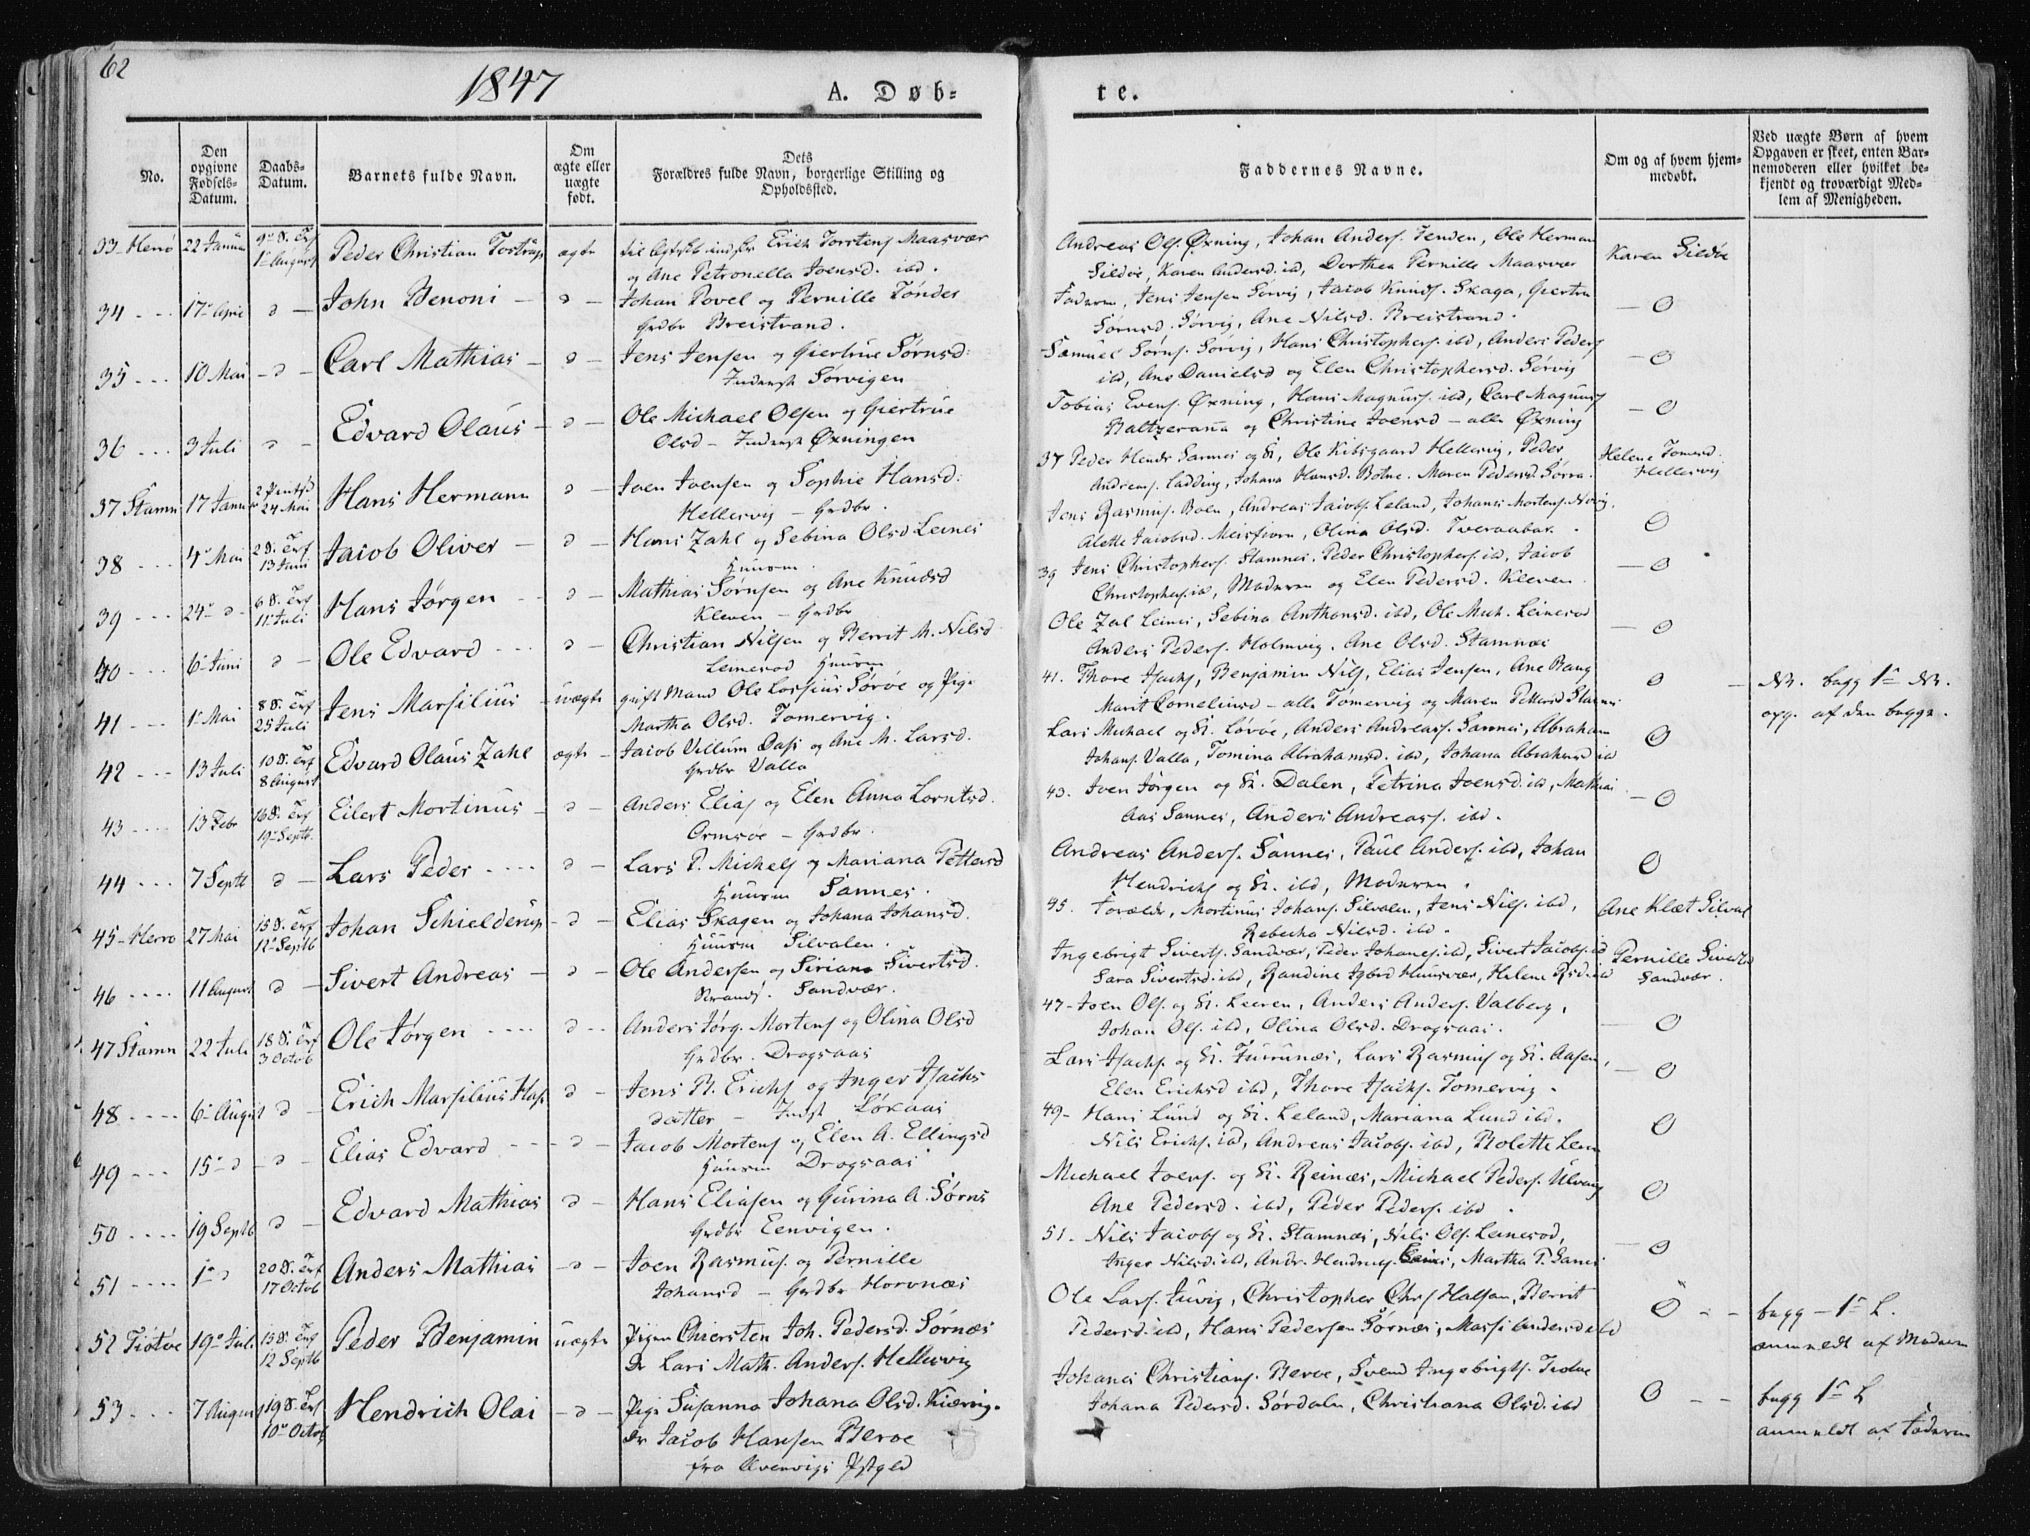 62
1847
A. Døb-
te.
No.
Den opgivne Fødsels-Datum.
Daabs-Datum.
Barnets fulde Navn.
Om ægte eller uægte født.
Dets Forældres fulde Navn, borgerlige Stilling og Opholdssted.
Faddernes Navne.
Om og af hvem hjem-medøbt.
Ved uægte Børn af hvem Opgaven er skeet, enten Bar-nemoderen eller hvilket be-kjendt og troværdigt Med-lem af Menigheden.
33 - Herrø 22 Januar 1 August Peder Christian Tostrup ægte Erich Torstens Maasvær
og Ane Petronella Joensd. ibd.
Andreas Ols. Øxning, Johan Anders. Tenden, Ole Herman
Sildøe, Karen Andersd. ibd, Dorthea Pernille Maasvær
Karen Sildøe
34 17 April d John Benoni d Johan Povel og Pernille Tønder
Grdbr Breistrand.
Faderen, Jens Jensen Sørvig, Jacob Knuds. Skaga, Giertru
Sørnsd. Sørvig, Ane Nilsd. Breistrand.
O
35 10 Mai d Carl Mathias d Jens Jensen og Giertrue Sørnsd:
Inderst Sørvigen
Samuel Sørns. Sørvig, Hans Christophers. ibd, Anders Peders
ibd, Ane Danielsd og Elen Christophersd. Sørvig
O
36 3 Juli d Edvard Olaus d Ole Michael Olsen og Giertrue
Olsd - Inderst Øxningen
Tobias Evens. Øxning, Hans Magnus. ibd, Carl Magnus
Baltzeranna og Christine Joensd - alle Øxning
O
37 Stamn 17 Januar 24 Mai Hans Hermann d Joen Joensen og Sophie Hansd:
Hellesvig - Grdbr.
37 Peder Hendr Sannes og K, Ole Kibsgaard Hellesvig, Peder
Andreas. Ladding, Johana Hansd. Botne. Maren Pedersd. Sørra
Helene Tomesd. Hellesvig
38 4 Mai 2 S. Trf 13 Juni Jacob Oliver d Hans Zahl og Sebina Olsd Leines
Huusm.
Jens Rasmus. Boen, Andreas Jacobs. Leland, Johans Mortens.
Alette Jacobsd. Meisfiorn, Olina Olsd. Tveraabak.
O
39 24 d 6 S. Trf 11 Juli Hans Jørgen d Mathias Sørnsen og Ane Knudsd
Kleven - Grdbr
39 Jens Christophers. Stamnes, Peder Christophers. ibd, Jacob
Christophers. ibd, Moderen og Elen Pedersd. Kleven
O
40 6 Juni d Ole Edvard d Christian Nilsen og Berrit M. Nilsd
Leinesod Huusm
Ole Zal Leines, Sebina Anthonsd. ibd, Ole Mich. Leinesod
Anders Peders. Holmvig, Ane Olsd. Stamnæs
O
41 1 Mai 8 S. Trf 25 Juli Jens Marsilius uægte gift Mand Ole Lossius Sørøe og Pige
Martha Olsd. Tømervig.
41. Thore Isachs, Benjamin Nils, Elias Jensen, Ane Bang
Marit Cornelinsd - alle Tømervig og Maren Pettersd Stamnes
O
begg 1
opg. af den begge.
42 13 Juli 10 S. Trf 8 August Edvard Olaus Zahl ægte Jacob Villum Dass og Ane M. Larsd.
Grdbr Valla
Lars Michael og K. Lørøe, Anders Andreass. Sannes, Abraham
Johans Valla, Tomina Abrahamsd. ibd, Johana Abrahamsd ibd
O
43 13 Febr 16 S. Trf 19 Septb. Eilert Mortinus d Anders Elias og Elen Anna Lorntsd.
Ormsøe - Grdbr.
43. Joen Jørgen og K. Dalen, Petrina Joensd. ibd, Mathias
Aas Sannes, Anders Andreass. ibd.
O
44 7 Septb d Lars Peder d Lars P. Michels og Mariana Pettersd
Huusm Sannes.
Andreas Anders. Sannes, Paul Anders. ibd, Johan
Hendrichs og K. ibd, Moderen.
O
45 - Herrø 27 Mai 15 S. Trf 12 Septb Johan Schielderup d Elias Skagen og Johana Johansd.
Huusm Silvalen.
45. Forældr, Mortinus Johans. Silvalen, Jens Nils. ibd,
Rebecka Nilsd. ibd.
Ane Klæt Silval
46 11 August d Sivert Andreas d Ole Andersen og Siriane Sivertsd.
Strands. Sandvær.
Ingebrigt Siverts. Sandvær, Peder Johanes ibd, Sivert Jacobs. ibd
Sara Sivertsd. ibd, Randine Igbrd Huusvær, Helene
Pernille Sivertsd Sandvær.
47 Stamn 22 Juli 18 S. Trf 3 Octob Ole Jørgen d Anders Jørg. Mortens og Olina Olsd
Grdbr. Drogsaas
47 - Joen Ols. og K. Leeren, Anders Anders. Valberg,
Johan Ols. ibd, Olina Olsd. Drogsaas.
O
48 6 August d Erich Marsilius d Jens B. Erichs og Inger Isachs
datter - Indst Løkaas
Lars Isachs. og K. Furunæs, Lars Rasmus og K. Aasen,
Elen Erichsd ibd, Thore Isachs. Tomervig.
O
49 15 d d Elias Edvard d Jacob Mortens og Elen A. Ellingsd
Huusm Drogsaas
49 - Hans Lund og K. Leland, Mariana Lund ibd.
Nils Erichs. ibd, Andreas Jacobs. ibd, Bolette Lem
O
50 19 Septb d Edvard Mathias d Hans Eliasen og Gurina A. Sørns
Grdbr Eenvigen.
Michael Joens. og K. Reinæs, Michael Peders. Ulvang
Ane Pedersd. ibd, Peder Peders. ibd.
O
51 1 d 20 S. Trf 17 Octob Anders Mathias d Joen Rasmus. og Pernille
Johansd - Grdbr Hornæs
51 - Nils Jacobs og K. Stamnæs, Nils Ols. Leinesod,
Inger Nilsd. ibd, Martha P. Sannes
O
52 Tiøtøe 19 Juli 15 S. Trf 12 Septb Peder Benjamin uægte Pigen Chiersten Joh. Pedersd. Sørnæs
Lars Math. Anders. Hellesvig
Ole Lars. Juvig, Christopher Chrs Halsan, Berrit
Pedersd. ibd, Hans Pedersen Sørnæs, Masse Andersd ibd
O
begg - 1 L.
anmeldt af Moderen
53 7 August 19 S. Trf 10 Octob Hendrich Olai d Pige Susanna Johana Olsd. Kiærvig.
Jacob Hansen Berøe
fra Pstgld
Johanes Christians. Berøe, Svend Ingebrigts. Tiøtøe
Johana Pedersd. Sørdalen, Christiana Olsd. ibd
O
begg 1 L
anmeldt af Faderen